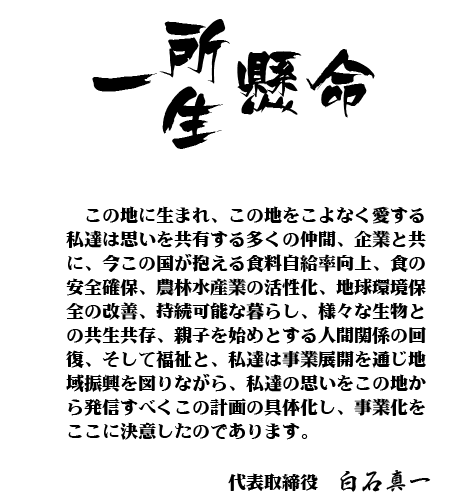 一所懸命
生
この地に生まれ、この地をこよなく愛する
私達は思いを共有する多くの仲間、企業と共
に、今この国が抱える食料自給率向上、食の
安全確保、農林水産業の活性化、地球環境保
全の改善、持続可能な暮らし、様々な生物と
の共生共存、親子を始めとする人間関係の回
復、そして福祉と、私達は事業展開を通じ地
域振興を図りながら、私達の思いをこの地か
ら発信すべくこの計画の具体化し、事業化を
ここに決意したのであります。
代表取締役 白石真一